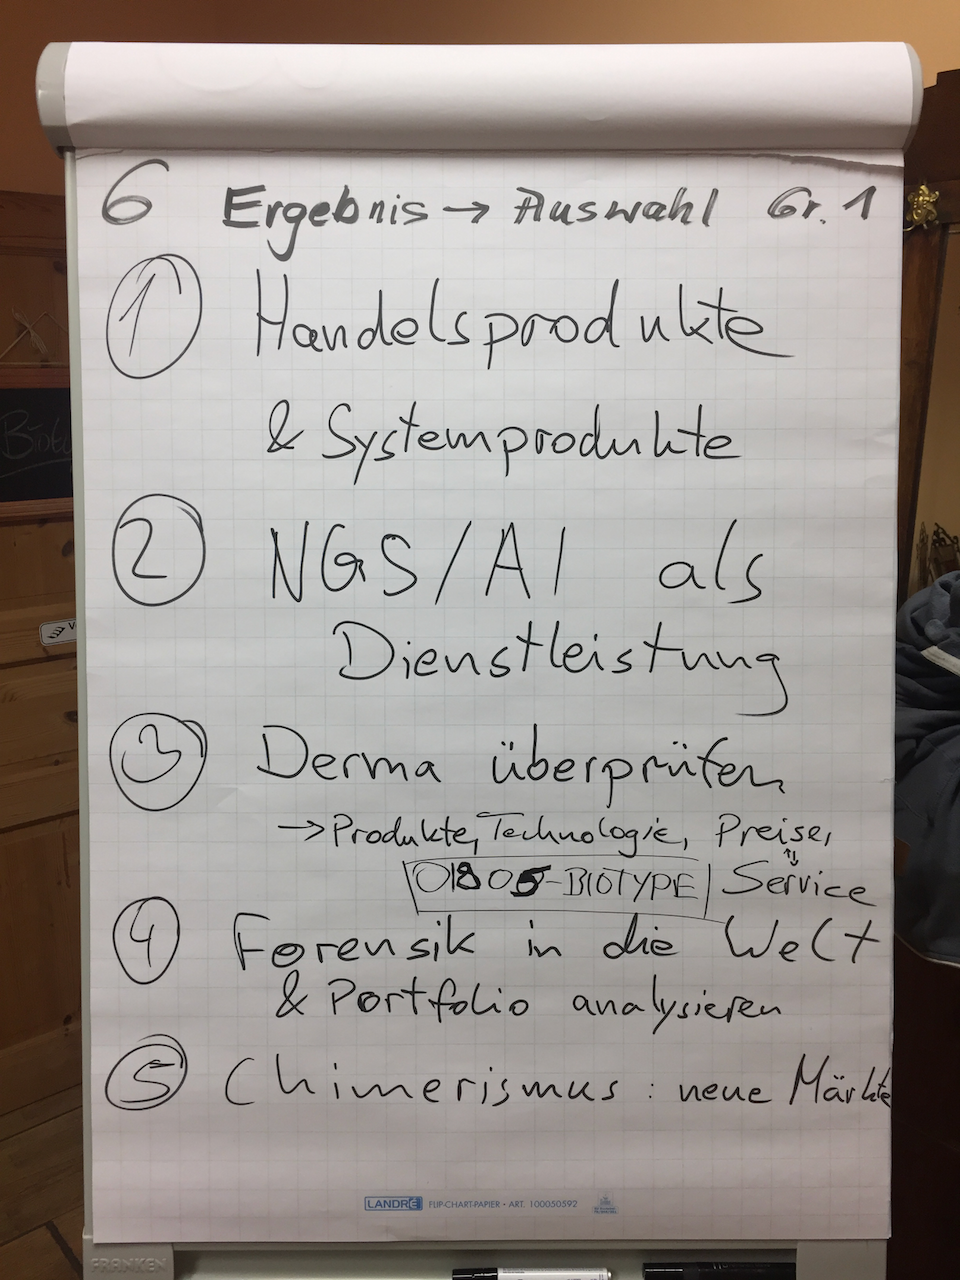 6 Ergebnis → Auswahl Gr. 1
1 Handelsprodukte
& Systemprodukte
2 NGS/AI als
Dienstleistung
3 Derma überprüfen
→ Produkte, Technologie, Preise,
01805-BIOTYPE Service
4 Forensik in die Welt
& Portfolio analysieren
5 Chimerismus: neue Märkte
LANDRÉ FLIP-CHART-PAPIER • ART. 100050592
FRANKEN